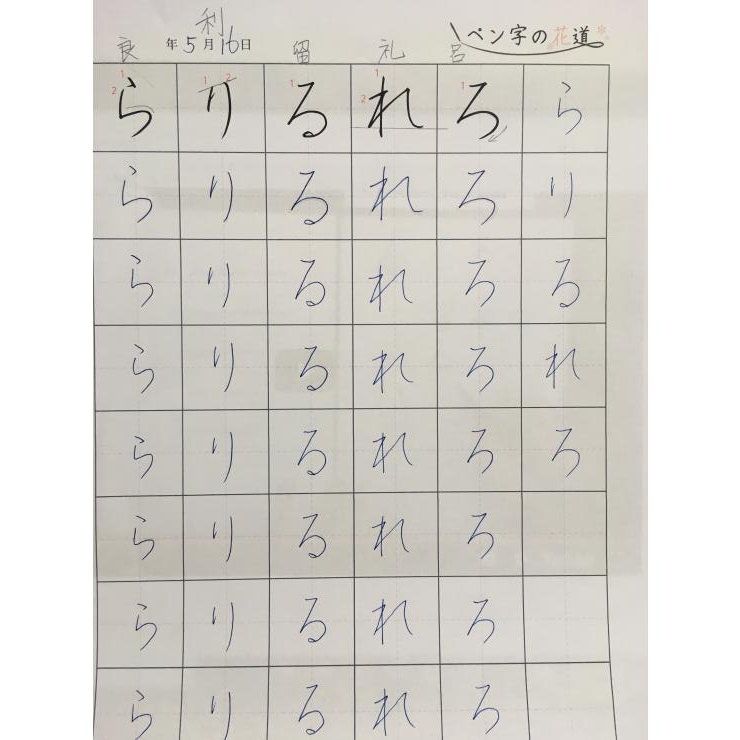 利
ペン字の花道
年5月16日
良 留 礼 呂
ら り る れ ろ ら
ら り る れ ろ り
ら り る れ ろ る
ら り る れ ろ れ
ら り る れ ろ ろ
ら り る れ ろ
ら り る れ ろ
ら り る れ ろ